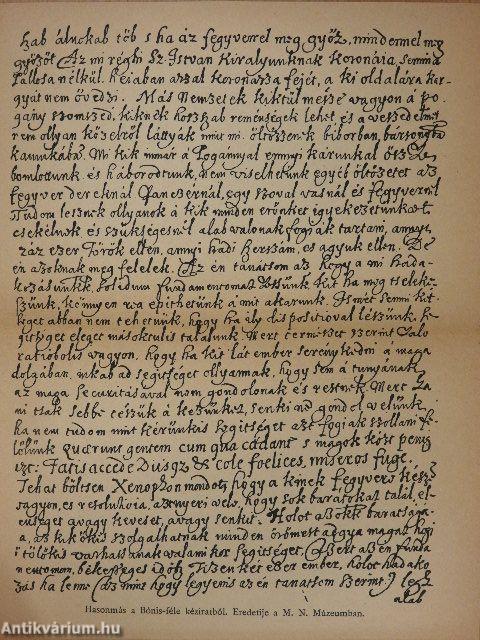 hab álnokab töb s ha az fegyverrel meg győz, mindennel meg
győzöt Az mi réghi Sz. Istvan Kiralyunknak koronáia, semmi a
Pallusa nélkül. héiaban azzal koronázza fejét, a ki oldalára kar-
gyát nem övedzi. Más Nemzetek kiktül messe vagyon á po-
gány szomszed, kiknek hoszab reménségek lehet és a veszedelmet
nem ollyan közelröl láttyák mint mi. öltözzenek biborban, barsonyba
kamukába? Mi kik immár a Pogannyal ennyi karunkal öszve
bomlottunk és háborodtunk, nem viselhetünk egyéb öltözetet az
fegyver dereknál Panczérnál, egy szoval vasnál és fegyvernél
Tudom lesznek ollyanok á kik minden erőnket igyekezetünket
csekélnek és szükségesnél alab valonak fogják tartani, annyi
száz ezer Török ellen, annyi hadi szerszám, és agyuk ellen. De
én azoknak meg felelek. Az én tanátsom az hogy a mi hada-
kozásunkk, solidum fundamentomat vessünk. kit ha meg cselek-
szünk, könnyen reá epithetünk á mit akarunk. Ismét semmi két-
séget abban nem tehetünk, hogy ha ily dispositioval lészünk, se-
gitséget eleget másoktulis talalunk. Mert termeszet szerint valo
ratiobolis vagyon, hogy ha kit lát ember serénykedni á maga
dolgában, inkab ad segitseget ollyannak, hogy sem á tunyának
az maga securitásával nem gondolonak és restnek. Mert ha
mi tsak sebbe tészük á kezünket, senki nem gondol velünk
ha nem tudom mint kérünkis segitséget azt fogjak szollani fe-
lölünk quærunt gentem cum qua cadant s magok közt penig
ezt: Fatis accede Diisqz & cole fœlices, miseros fuge.
Tehat böltsen Xenophon mondotta hogy a kinek fegyvere kész
vagyon, es resolutioia, az tnyeri vele, hogy sok baratokat talál, el-
enséget avagy keveset, avagy senkit. Holot azokk baratsága-
a, az kik ökis szolgalhatnak minden örömest adgya magát hogi
i tölökis varhassanak valami kor segitséget. Azert az én funda
mentomom, bekeséges idöth Tizen ket ezer ember, holot hadako
zás ha lenne (az mint hogy legyenis az én tanatsom szerint) legz
alab
Hasonmás a Bónis-féle kéziratból. Eredetije a M. N. Múzeumban.
Antikvárium.hu